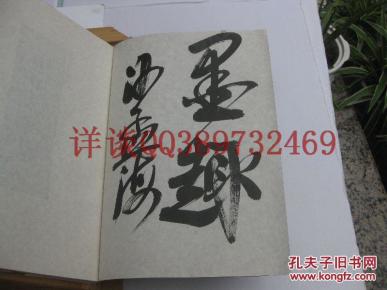 墨趣
沙孟海
详谈QQ389732469
孔夫子旧书网